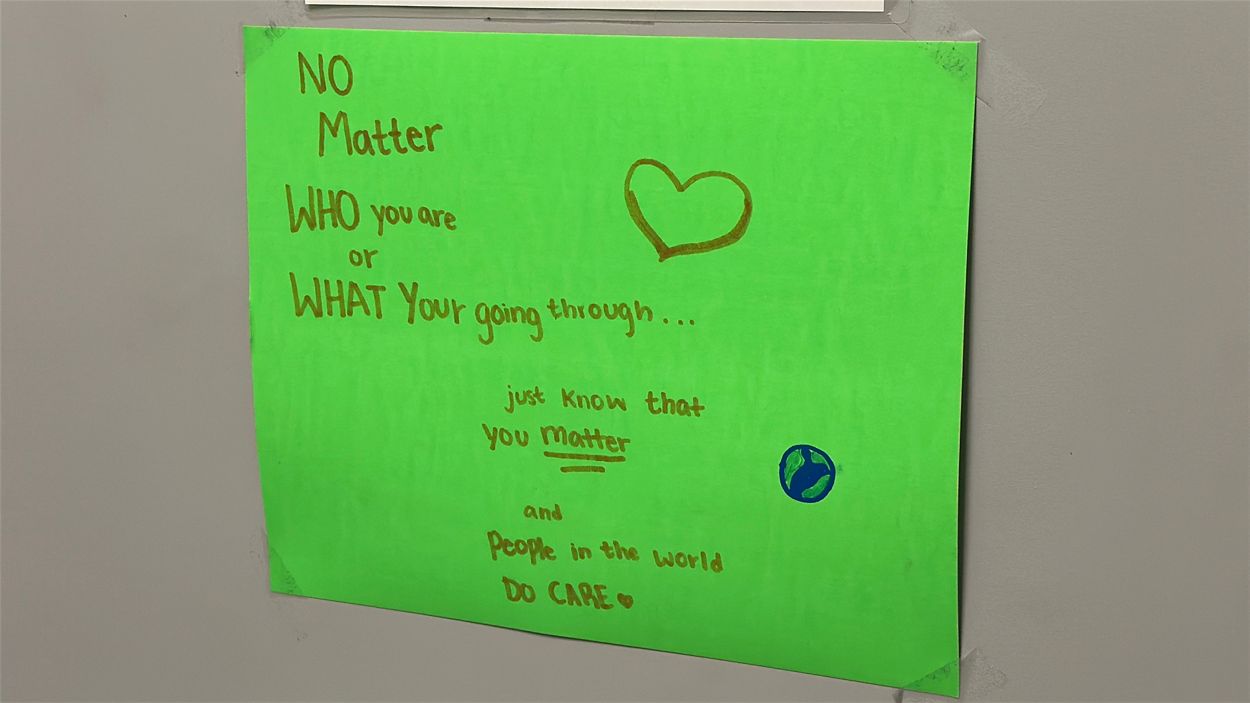 NO
Matter
WHO you are
or
WHAT Your going through...
just know that
you matter
and
People in the world
DO CARE ♥